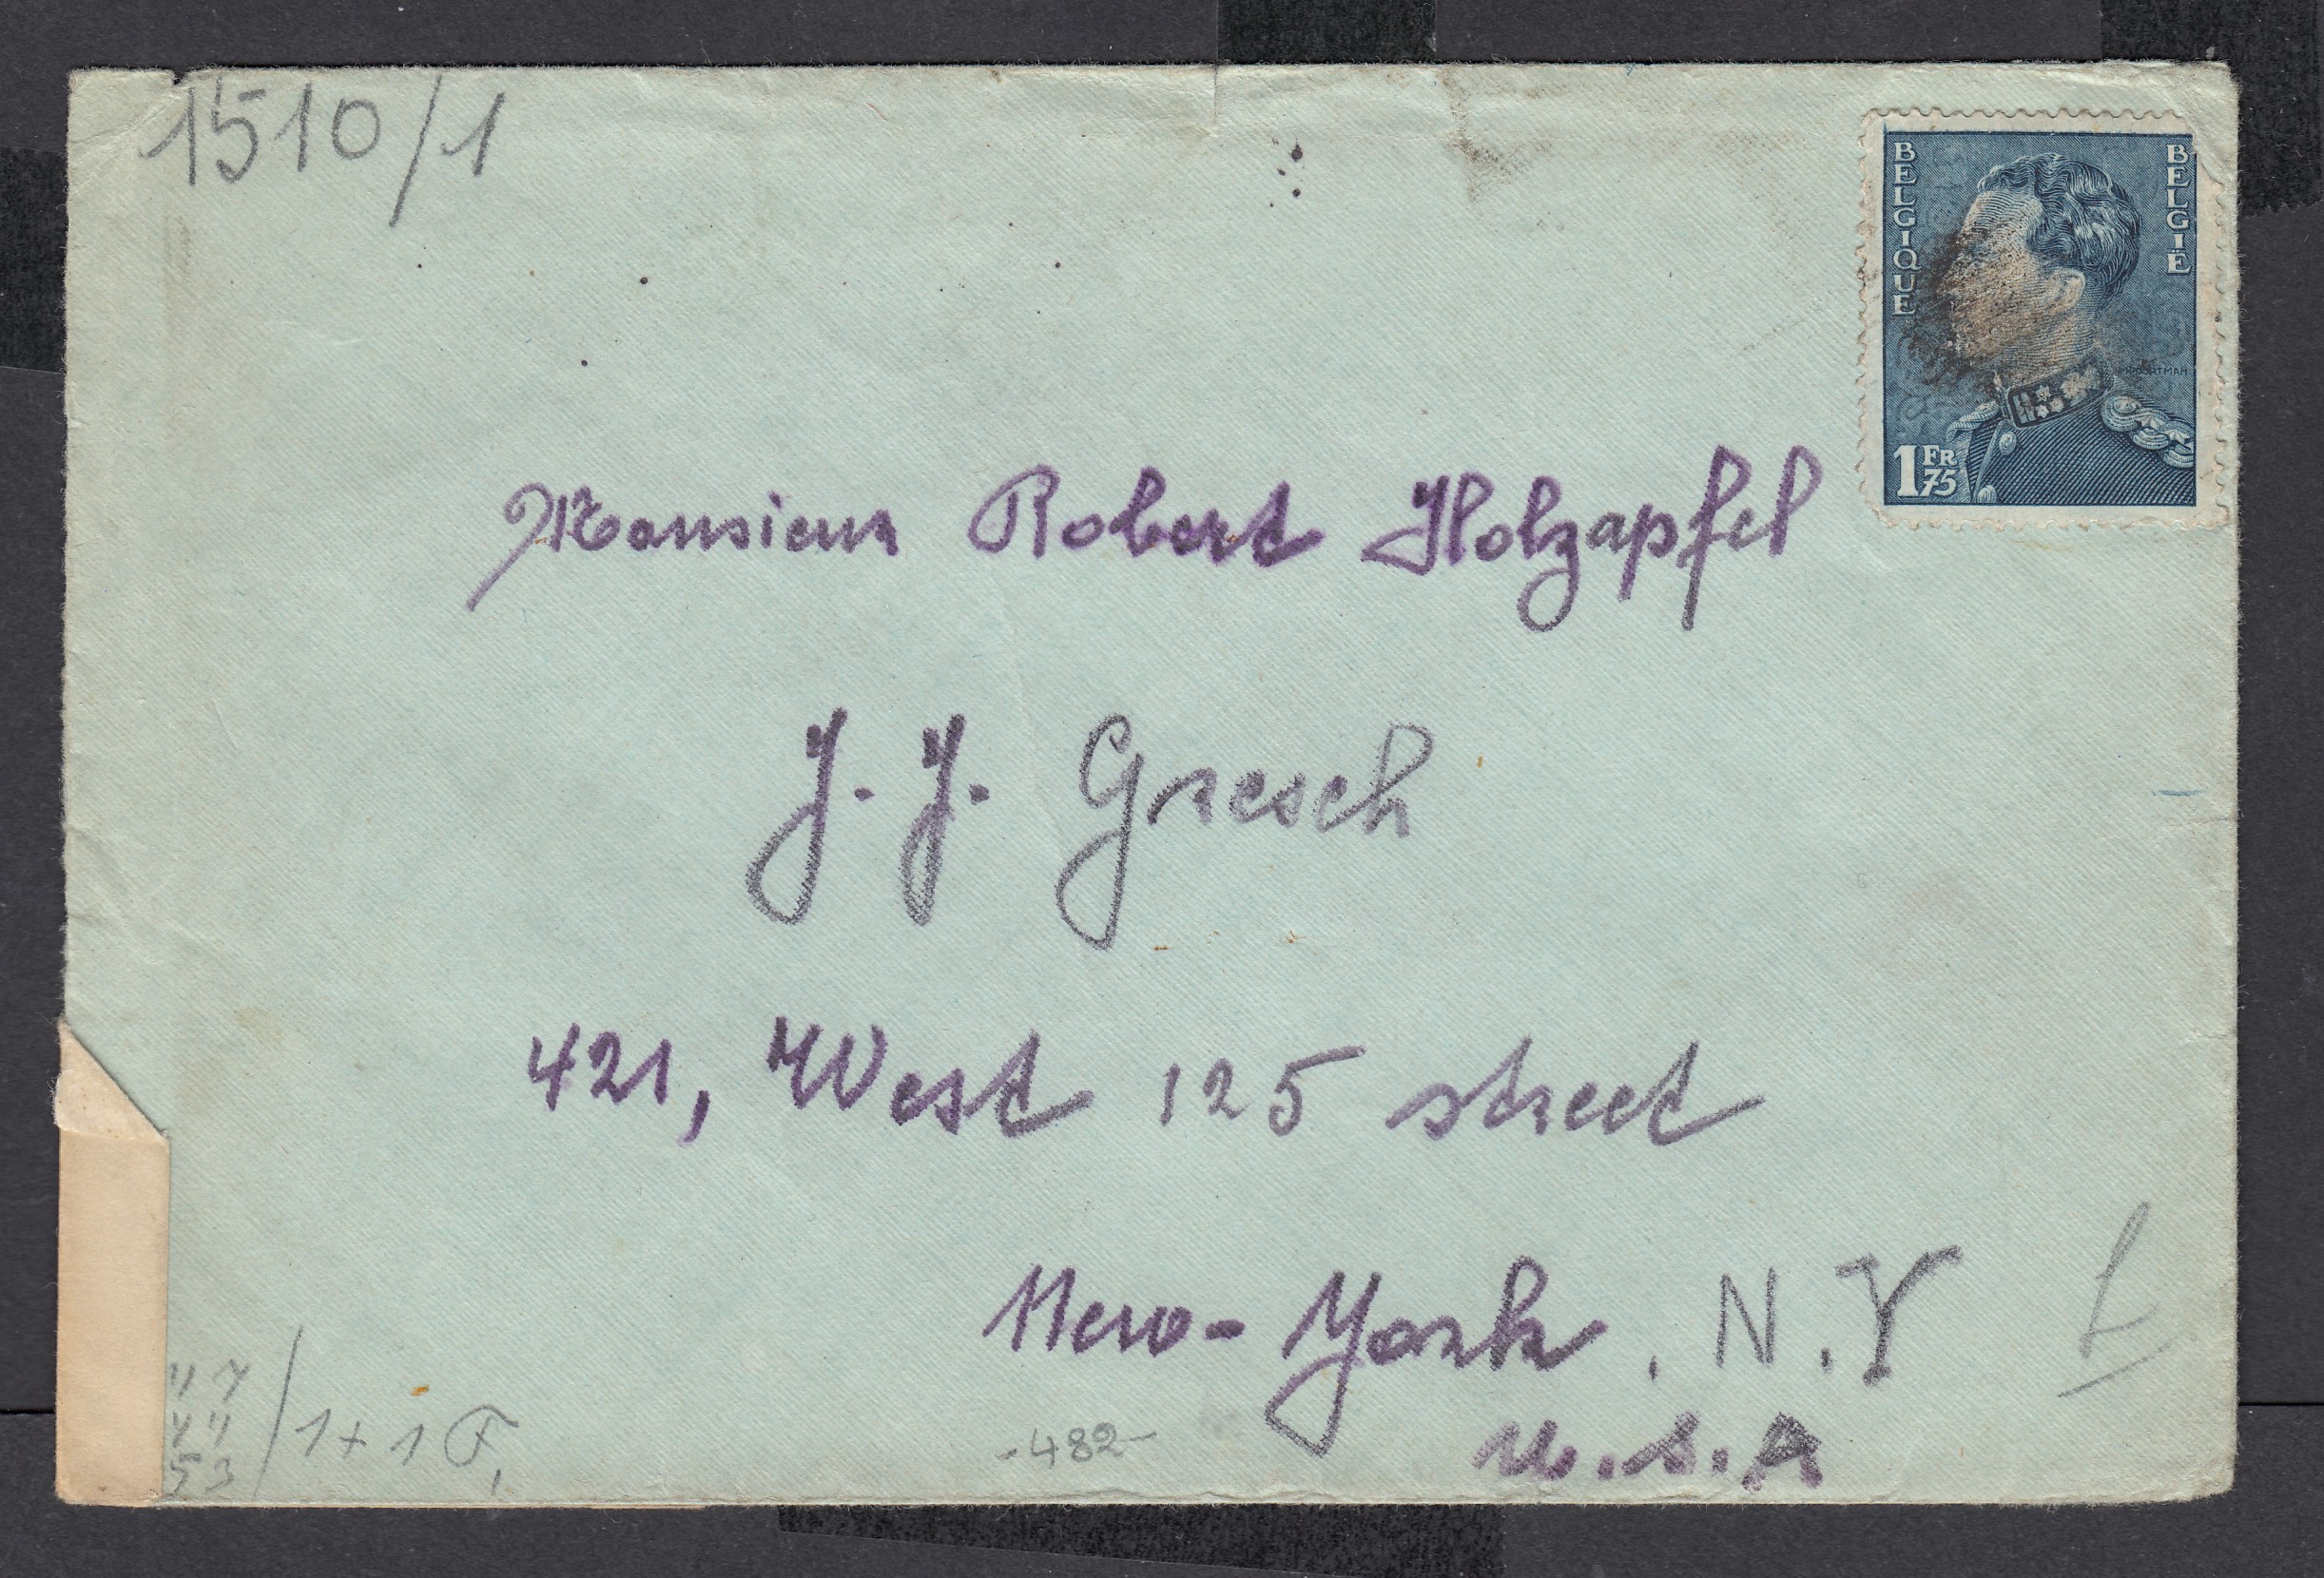 1510/1
BELGIQUE
BELGIË
1 FR 75
Monsieur Robert Holzapfel
J. J. Gresch
421, West 125 street
New-York. N.Y
U.S.A
-482-
53
1+1 F,